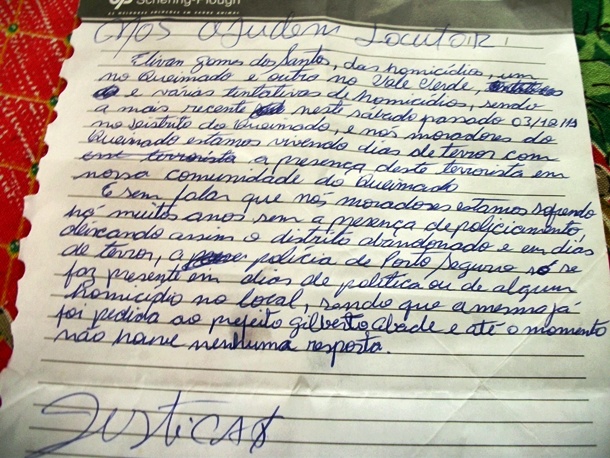 Schering-Plough
NOS AJUDEM LOCUTOR!
Elivan Gomes dos Santos, das homicídios, um
no Queimado e outro no Vale Verde,
e várias tentativas de homicídios, sendo
a mais recente neste sabado passado 03/12/11
no Distrito do Queimado, e nós moradores do
Queimado estamos vivendo dias de terror com
em terrorista a presença deste terrorista em
nossa comunidade do Queimado
E sem falar que nós moradores estamos sofrendo
há muitos anos sem a presença de policiamento,
deixando assim o distrito abandonado e em dias
de terror, a policia de Porto Seguro só se
faz presente em dias de politica ou de algum
homicidio no local, sendo que a mesma já
foi pedida ao prefeito Gilberto Abade e até o momento
não houve nenhuma resposta.
JUSTIÇA